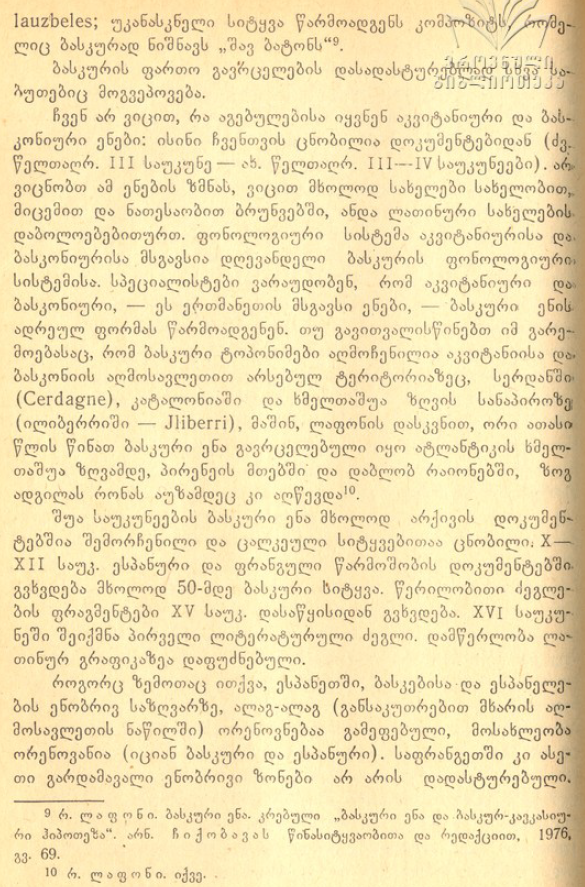 lauzbeles; უკანასკნელი სიტყვა წარმოადგენს კომპოზიტს, რომე-
ლიც ბასკურად ნიშნავს „შავ ბატონს“⁹.
ბასკურის ფართო გავრცელების დასადასტურებლად სხვა სა-
ბუთებიც მოგვეპოვება.
ჩვენ არ ვიცით, რა აგებულებისა იყვნენ აკვიტანიური და ბას-
კონიური ენები: ისინი ჩვენთვის ცნობილია დოკუმენტებიდან (ძვ.
წელთაღრ. III საუკუნე — ახ. წელთაღრ. III—IV საუკუნეები). არ
ვიცნობთ ამ ენების ზმნას, ვიცით მხოლოდ სახელები სახელობით,
მიცემით და ნათესაობით ბრუნვებში, ანდა ლათინური სახელების
დაბოლოებებითურთ. ფონოლოგიური სისტემა აკვიტანიურისა და
ბასკონიურისა მსგავსია დღევანდელი ბასკურის ფონოლოგიური
სისტემისა. სპეციალისტები ვარაუდობენ, რომ აკვიტანიური და
ბასკონიური, — ეს ერთმანეთის მსგავსი ენები, — ბასკური ენის
ადრეულ ფორმას წარმოადგენენ. თუ გავითვალისწინებთ იმ გარე-
მოებასაც, რომ ბასკური ტოპონიმები აღმოჩენილია აკვიტანიისა და
ბასკონიის აღმოსავლეთით არსებულ ტერიტორიაზეც, სერდანში
(Cerdagne), კატალონიაში და ხმელთაშუა ზღვის სანაპიროზე
(ილიბერრიში — Jliberri), მაშინ, ლაფონის დასკვნით, ორი ათასი
წლის წინათ ბასკური ენა გავრცელებული იყო ატლანტიკის ხმელ-
თაშუა ზღვამდე, პირენეის მთებში და დაბლობ რაიონებში, ზოგ
ადგილას რონას აუზამდეც კი აღწევდა¹⁰.
შუა საუკუნეების ბასკური ენა მხოლოდ არქივის დოკუმენ-
ტებშია შემორჩენილი და ცალკეული სიტყვებითაა ცნობილი. X—
XII საუკ. ესპანური და ფრანგული წარმოშობის დოკუმენტებში
გვხვდება მხოლოდ 50-მდე ბასკური სიტყვა. წერილობითი ძეგლე-
ბის ფრაგმენტები XV საუკ. დასაწყისიდან გვხვდება. XVI საუკუ-
ნეში შეიქმნა პირველი ლიტერატურული ძეგლი. დამწერლობა ლა-
თინურ გრაფიკაზეა დაფუძნებული.
როგორც ზემოთაც ითქვა, ესპანეთში, ბასკებისა და ესპანელე-
ბის ენობრივ საზღვარზე, ალაგ-ალაგ (განსაკუთრებით მხარის აღ-
მოსავლეთის ნაწილში) ორენოვნებაა გამეფებული, მოსახლეობა
ორენოვანია (იციან ბასკური და ესპანური). საფრანგეთში კი ასე-
თი გარდამავალი ენობრივი ზონები არ არის დადასტურებული.
⁹ რ. ლაფონი. ბასკური ენა. კრებული „ბასკური ენა და ბასკურ-კავკასიუ-
რი ჰიპოთეზა“. არნ. ჩიქობავას წინასიტყვაობითა და რედაქციით, 1976,
გვ. 69.
¹⁰ რ. ლაფონი. იქვე.